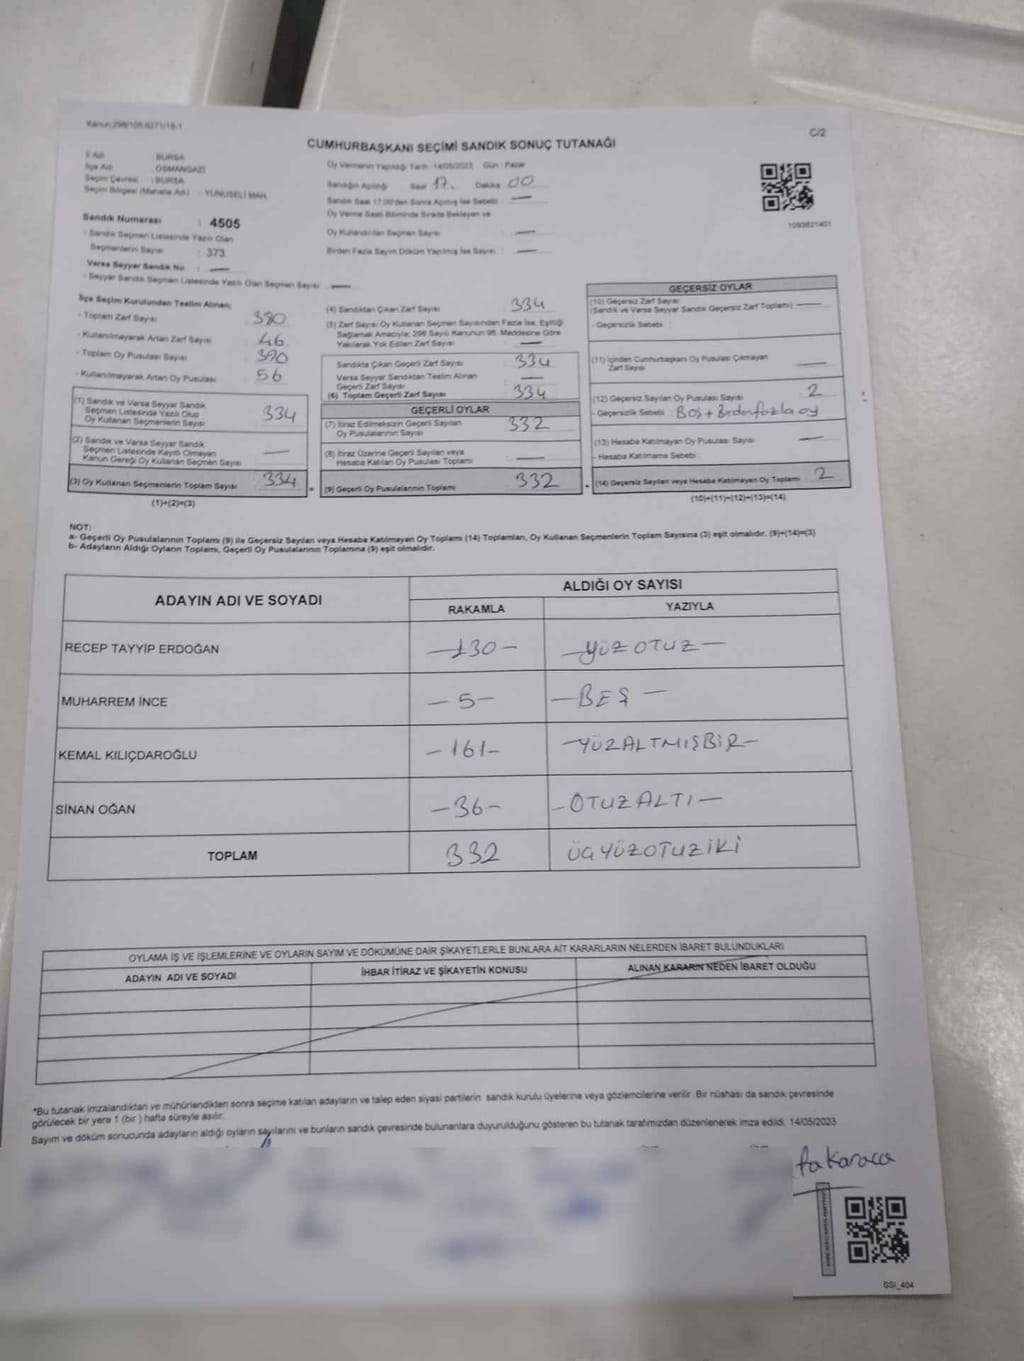 Kanun:298/105,6271/18-1
C/2
CUMHURBAŞKANI SEÇİMİ SANDIK SONUÇ TUTANAĞI
İl Adı : BURSA
İlçe Adı : OSMANGAZİ
Seçim Çevresi : BURSA
Seçim Bölgesi (Mahalle Adı) : YUNUSELİ MAH.
Sandık Numarası : 4505
- Sandık Seçmen Listesinde Yazılı Olan
Seçmenlerin Sayısı : 373
Varsa Seyyar Sandık No : —
- Seyyar Sandık Seçmen Listesinde Yazılı Olan Seçmen Sayısı : —
Oy Vermenin Yapıldığı Tarih : 14/05/2023 Gün : Pazar
Sandığın Açıldığı Saat 17. Dakika 00
Sandık Saat 17.00'den Sonra Açılmış İse Sebebi : —
Oy Verme Saati Bitiminde Sırada Bekleyen ve
Oy Kullandırılan Seçmen Sayısı : —
Birden Fazla Sayım Döküm Yapılmış İse Sayısı : —
1093621401
İlçe Seçim Kurulundan Teslim Alınan;
- Toplam Zarf Sayısı 380
- Kullanılmayarak Artan Zarf Sayısı 46
- Toplam Oy Pusulası Sayısı 390
- Kullanılmayarak Artan Oy Pusulası 56
(1) Sandık ve Varsa Seyyar Sandık
Seçmen Listesinde Yazılı Olup
Oy Kullanan Seçmenlerin Sayısı 334
(2) Sandık ve Varsa Seyyar Sandık
Seçmen Listesinde Kayıtlı Olmayan
Kanun Gereği Oy Kullanan Seçmen Sayısı —
(3) Oy Kullanan Seçmenlerin Toplam Sayısı 334 =
(1)+(2)=(3)
(4) Sandıktan Çıkan Zarf Sayısı 334
(5) Zarf Sayısı Oy Kullanan Seçmen Sayısından Fazla İse, Eşitliği
Sağlamak Amacıyla; 298 Sayılı Kanunun 98. Maddesine Göre
Yakılarak Yok Edilen Zarf Sayısı —
Sandıkta Çıkan Geçerli Zarf Sayısı 334
Varsa Seyyar Sandıktan Teslim Alınan
Geçerli Zarf Sayısı —
(6) Toplam Geçerli Zarf Sayısı 334
GEÇERLİ OYLAR
(7) İtiraz Edilmeksizin Geçerli Sayılan
Oy Pusulalarının Sayısı 332
(8) İtiraz Üzerine Geçerli Sayılan veya
Hesaba Katılan Oy Pusulası Toplamı : —
(9) Geçerli Oy Pusulalarının Toplamı 332 +
GEÇERSİZ OYLAR
(10) Geçersiz Zarf Sayısı
(Sandık ve Varsa Seyyar Sandık Geçersiz Zarf Toplamı) —
- Geçersizlik Sebebi :
(11) İçinden Cumhurbaşkanı Oy Pusulası Çıkmayan
Zarf Sayısı —
(12) Geçersiz Sayılan Oy Pusulası Sayısı 2
- Geçersizlik Sebebi : Boş + Birdenfazla oy
(13) Hesaba Katılmayan Oy Pusulası Sayısı —
- Hesaba Katılmama Sebebi
(14) Geçersiz Sayılan veya Hesaba Katılmayan Oy Toplamı 2
(10)+(11)+(12)+(13)=(14)
NOT:
a- Geçerli Oy Pusulalarının Toplamı (9) ile Geçersiz Sayılan veya Hesaba Katılmayan Oy Toplamı (14) Toplamları, Oy Kullanan Seçmenlerin Toplam Sayısına (3) eşit olmalıdır. (9)+(14)=(3)
b- Adayların Aldığı Oyların Toplamı, Geçerli Oy Pusulalarının Toplamına (9) eşit olmalıdır.
ADAYIN ADI VE SOYADI
ALDIĞI OY SAYISI
RAKAMLA YAZIYLA
RECEP TAYYİP ERDOĞAN -130- -YÜZOTUZ-
MUHARREM İNCE -5- -BEŞ-
KEMAL KILIÇDAROĞLU -161- -YÜZALTMIŞBİR-
SİNAN OĞAN -36- -OTUZALTI-
TOPLAM 332 ÜÇYÜZOTUZİKİ
OYLAMA İŞ VE İŞLEMLERİNE VE OYLARIN SAYIM VE DÖKÜMÜNE DAİR ŞİKAYETLERLE BUNLARA AİT KARARLARIN NELERDEN İBARET BULUNDUKLARI
ADAYIN ADI VE SOYADI İHBAR İTİRAZ VE ŞİKAYETİN KONUSU ALINAN KARARIN NEDEN İBARET OLDUĞU
*Bu tutanak imzalandıktan ve mühürlendikten sonra seçime katılan adayların ve talep eden siyasi partilerin sandık kurulu üyelerine veya gözlemcilerine verilir .Bir nüshası da sandık çevresinde
görülecek bir yere 1 (bir ) hafta süreyle asılır.
Sayım ve döküm sonucunda adayların aldığı oyların sayılarını ve bunların sandık çevresinde bulunanlara duyurulduğunu gösteren bu tutanak tarafımızdan düzenlenerek imza edildi. 14/05/2023
fa karaca
SSI_404